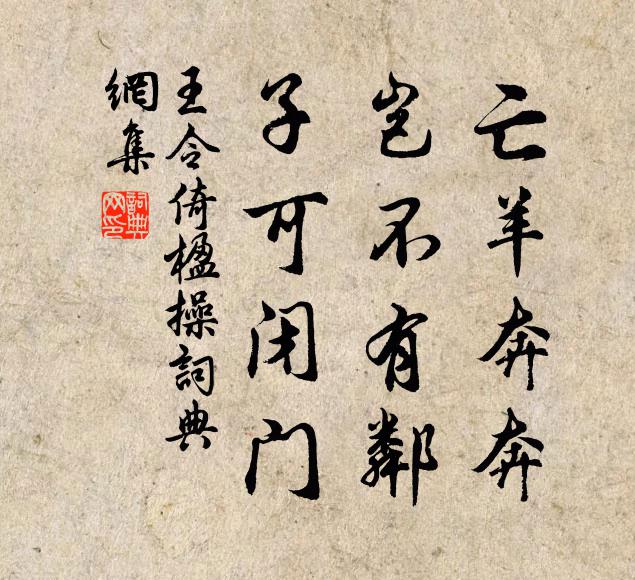 亡羊奔奔
岂不有鄰
子可闭门
王令倚楹操詞典
網集
詞典
网印